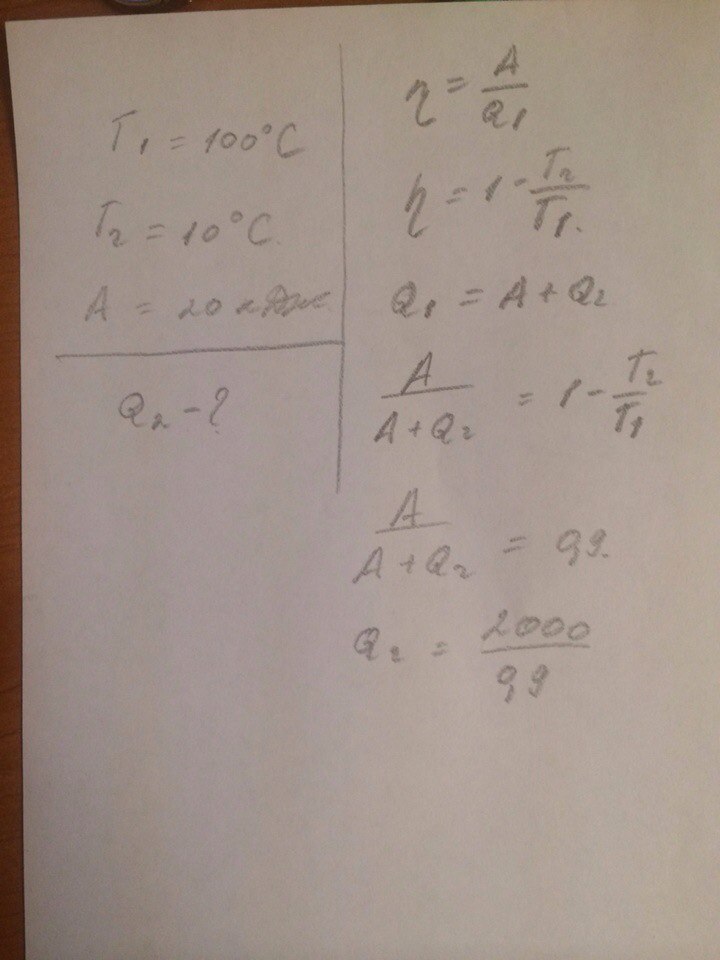 T₁ = 100°C
T₂ = 10°C
A = 20 кДж
Q₂ - ?
η = A / Q₁
η = 1 - T₂ / T₁.
Q₁ = A + Q₂
A / (A + Q₂) = 1 - T₂ / T₁
A / (A + Q₂) = 0,9.
Q₂ = 2000 / 0,9